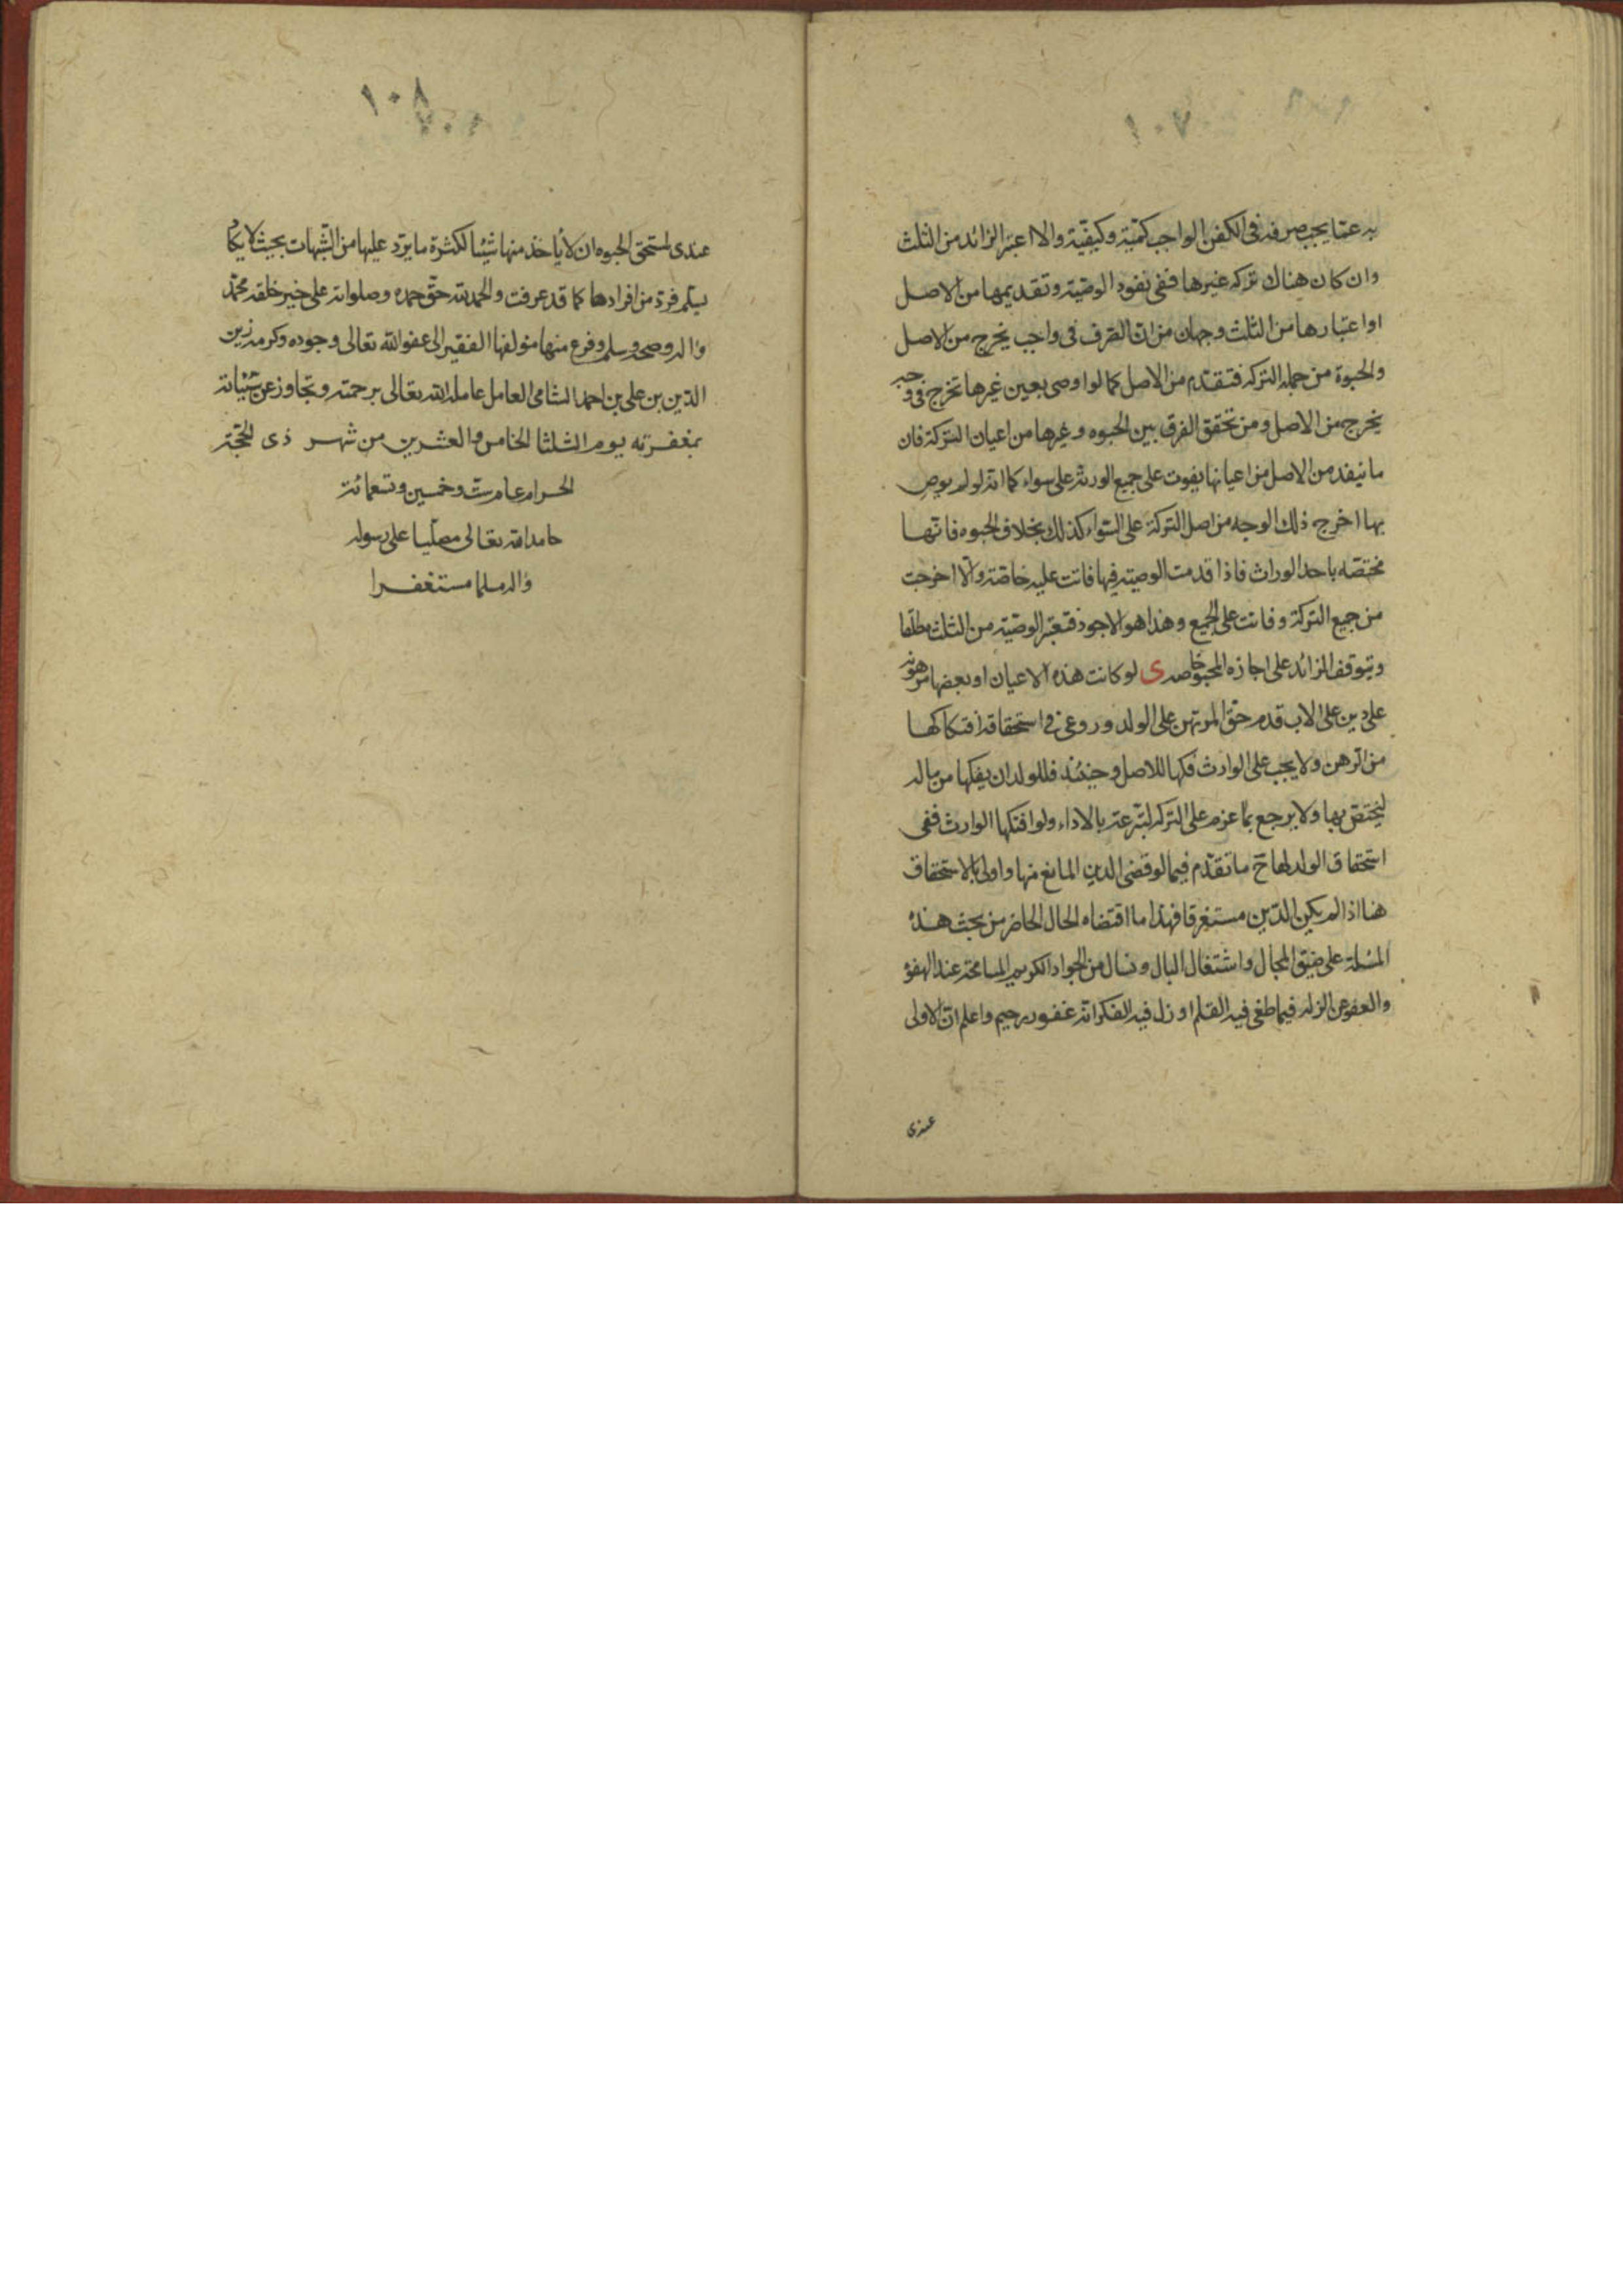 ١٠٧
به عما يجب صرفه فى الكفن الواجب كميّة وكيفيّة والا اعتبر الزائد من الثلث
وان كان هناك تركه غيرها ففى نفوذ الوصيّة وتقديمها من الاصل
او اعتبارها من الثلث وجهان من انّ التصرف فى واجب يخرج من الاصل
والحبوة من جمله التركه فتقدّم من الاصل كما لو اوصى بعين غيرها تخرج فى
يخرج من الاصل ومن تحقق الفرق بين الحبوه وغيرها من اعيان التركة فان
ما ينفد من الاصل من اعيانها يفوت على جميع الورثه على سواء كما انه لو لم يوص
بها اخرج ذلك الوجه من اصل التركة على السّواء كذلك بخلاف الحبوه فانّها
مختصّه باحد الوراث فاذا قدمت الوصيّة فيها فاتت عليه خاصّة والّا اخرجت
من جميع التركة وفاتت على الجميع وهذا هو الاجود فتعتبر الوصيّة من الثلث مطلقا
ويتوقف الزائد على اجازه المحبو خاصه ى لو كانت هذه الاعيان او بعضها مرهونه
على دين على الاب قدم حقّ المرتهن على الولد وروعى فى استحقاقه افتكاكها
من الرهن ولا يجب على الوارث فكها للاصل وحينئذ فللولد ان يفكها من ماله
ليختصّ بها ولا يرجع بما عزم على التركه لتبرعه بالاداء ولو افتكها الوارث ففى
استحقاق الولد لها ح ما تقدّم فيما لو قضى الدين المانع منها واولى بالاستحقاق
هنا اذا لم يكن الدّين مستغرقا فهذا ما اقتضاه الحال الحاضر من بحث هذه
المسئلة على ضيق المجال واشتغال البال ونسال من الجواد الكريم المسامحة عند الهفوة
والعفو عن الزله فيما طغى فيه القلم او زل فيه الفكر انه غفور رحيم واعلم انّ الاولى
عندى
١٠٨
عندى لمستحق الحبوه ان لا ياخذ منها شيئا لكثرة ما يرد عليها من الشّبهات بحيث لا يكاد
يسلم فرد من افرادها كما قد عرفت والحمد لله حقّ حمده وصلواته على خير خلقه محمّد
واله وصحبه وسلم وفرغ منها مؤلفها الفقير الى عفو الله تعالى وجوده وكرمه زين
الدّين بن على بن احمد الشامى العامل عامله الله تعالى برحمته وتجاوز عن سيّئاته
بمغفرته يوم الثلثا الخامس والعشرين من شهر ذى الحجّة
الحرام عام ستّ وخمسين وتسعمائة
حامدا لله تعالى مصلّيا على رسوله
واله مسلما مستغفرا